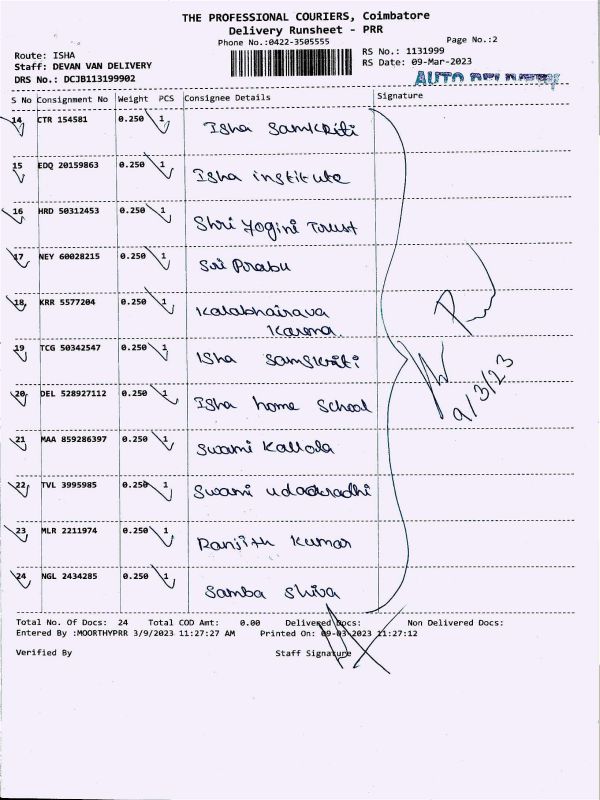 THE PROFESSIONAL COURIERS, Coimbatore
Delivery Runsheet - PRR
Phone No.:0422-3505555
Page No.:2
Route: ISHA
RS No.: 1131999
Staff: DEVAN VAN DELIVERY
RS Date: 09-Mar-2023
DRS No.: DCJB113199902
AUTO DELIVERY
S No Consignment No Weight PCS Consignee Details Signature
14 CTR 154581 0.250 1 Isha Samskriti
15 EDQ 20159863 0.250 1 Isha institute
16 HRD 50312453 0.250 1 Shri Yogini Trust
17 NEY 60028215 0.250 1 Sri Prabu
18 KRR 5577204 0.250 1 Kalabhairava
Karma.
19 TCG 50342547 0.250 1 Isha Samskriti
20 DEL 528927112 0.250 1 Isha home School
21 MAA 859286397 0.250 1 Swami Kallola
22 TVL 3995985 0.250 1 Swami
23 MLR 2211974 0.250 1 Ranjith Kumar
24 NGL 2434285 0.250 1 Samba Shiva
9/3/23
Total No. Of Docs: 24 Total COD Amt: 0.00 Delivered Docs: Non Delivered Docs:
Entered By :MOORTHYPRR 3/9/2023 11:27:27 AM Printed On: 09-03-2023 11:27:12
Verified By Staff Signature